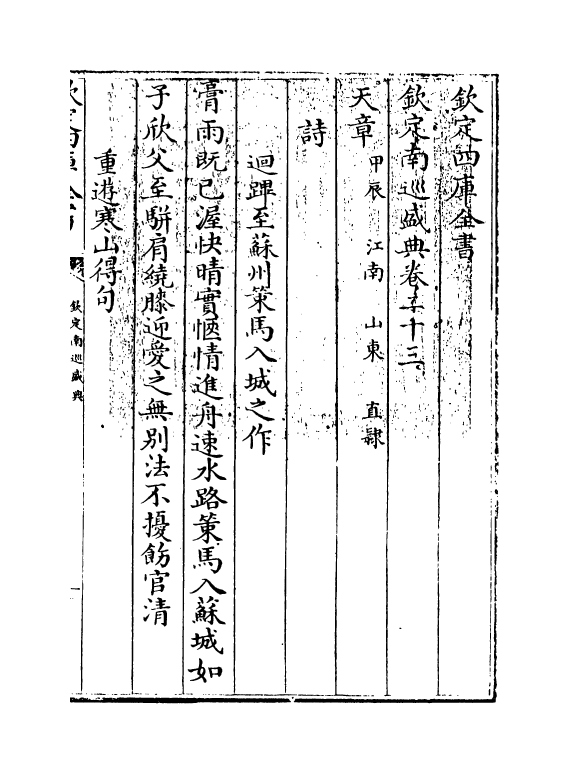 欽定四庫全書
欽定南巡盛典卷三十三
天章 甲辰 江南 山東 直隸
詩
迴蹕至蘇州策馬入城之作
膏雨既已渥快晴實愜情進舟速水路策馬入蘇城如
子欣父至駢肩繞膝迎愛之無別法不擾飭官清
重遊寒山得句
欽定南巡盛典
一